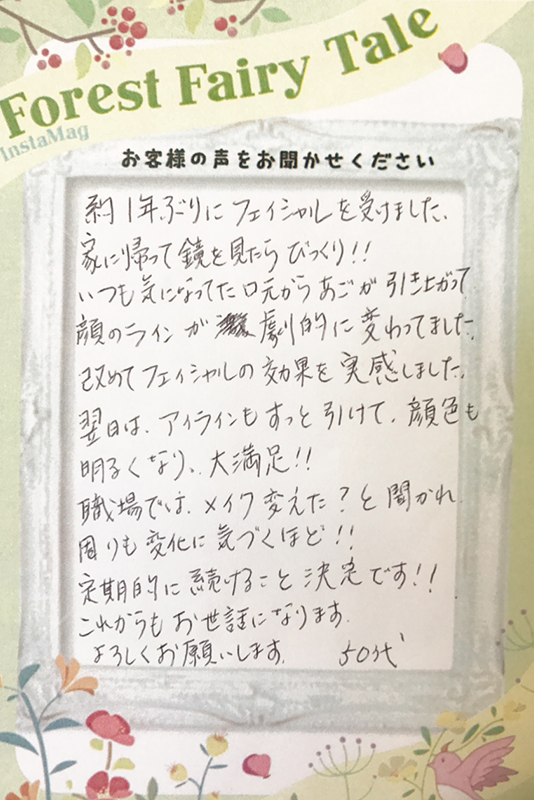 Forest Fairy Tale
InstaMag
お客様の声をお聞かせください
約1年ぶりにフェイシャルを受けました.
家に帰って鏡を見たらびっくり!!
いつも気になってた口元からあごが引き上がって
顔のラインが劇的に変わってました.
改めてフェイシャルの効果を実感しました.
翌日は、アイラインもすっと引けて、顔色も
明るくなり、大満足!!
職場では、メイク変えた?と聞かれ、
周りも変化に気づくほど!!
定期的に続けること決定です!!
これからもお世話になります.
よろしくお願いします. 50代